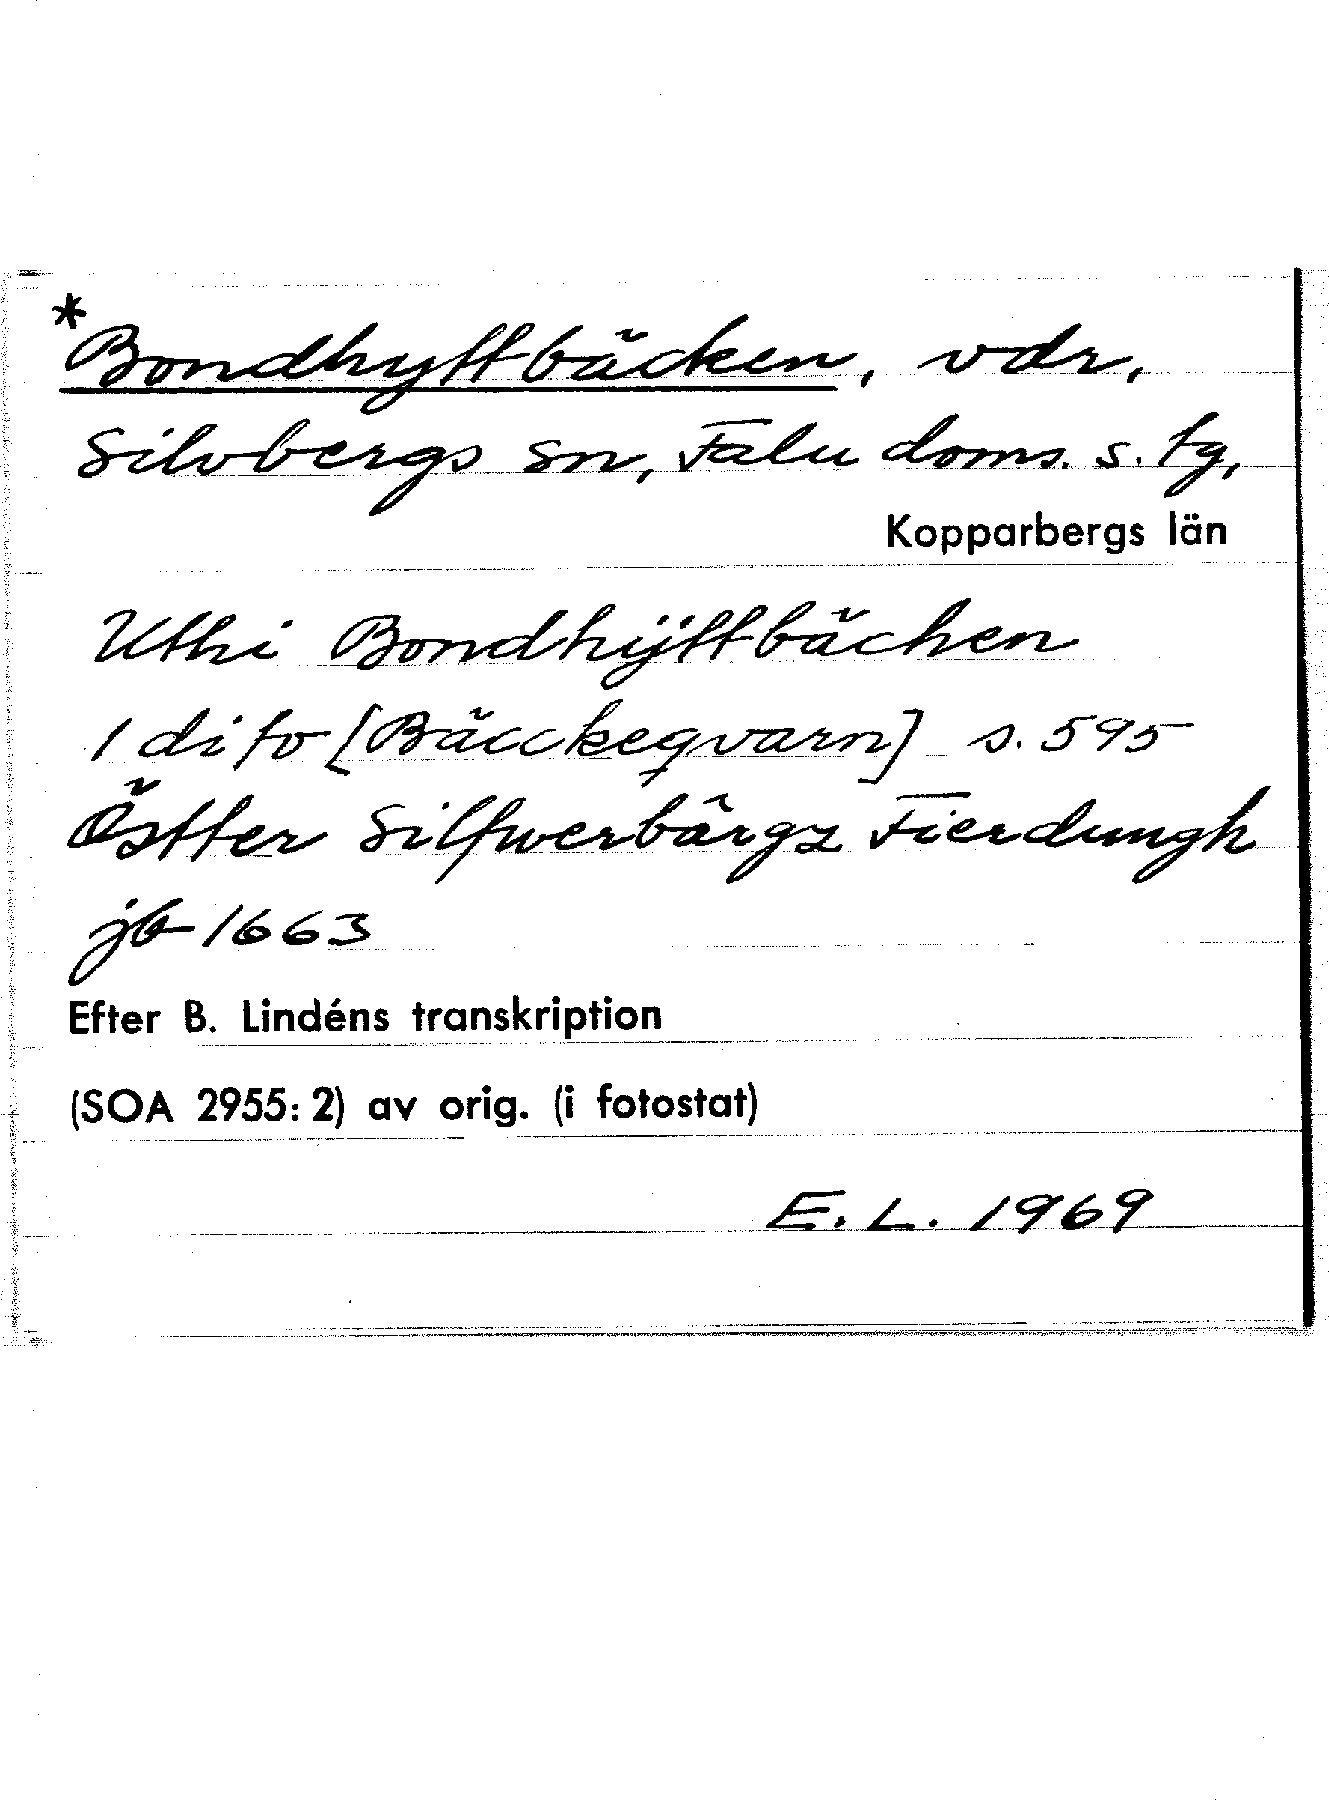 *Bondhyttbäcken, vdr,
Silvbergs sn, Falu doms. s. tg,
Kopparbergs län
Uthi Bondhÿttbächen
1 dito [Bäcckeqvarn] s. 595
Östter Silfwerbärgz Fierdungh
jb 1663
Efter B. Lindéns transkription
(SOA 2955:2) av orig. (i fotostat)
E. L. 1969